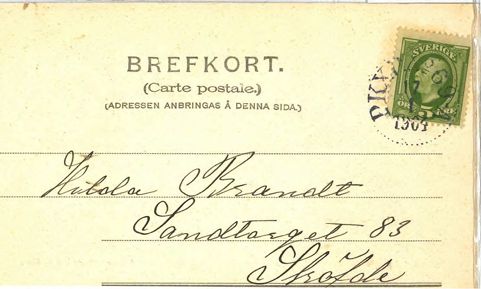 BREFKORT.
(Carte postale.)
(ADRESSEN ANBRINGAS Å DENNA SIDA.)
SVERIGE
PKXP
1904
Hilda Brandt
Sandtorget 83
Sköfde